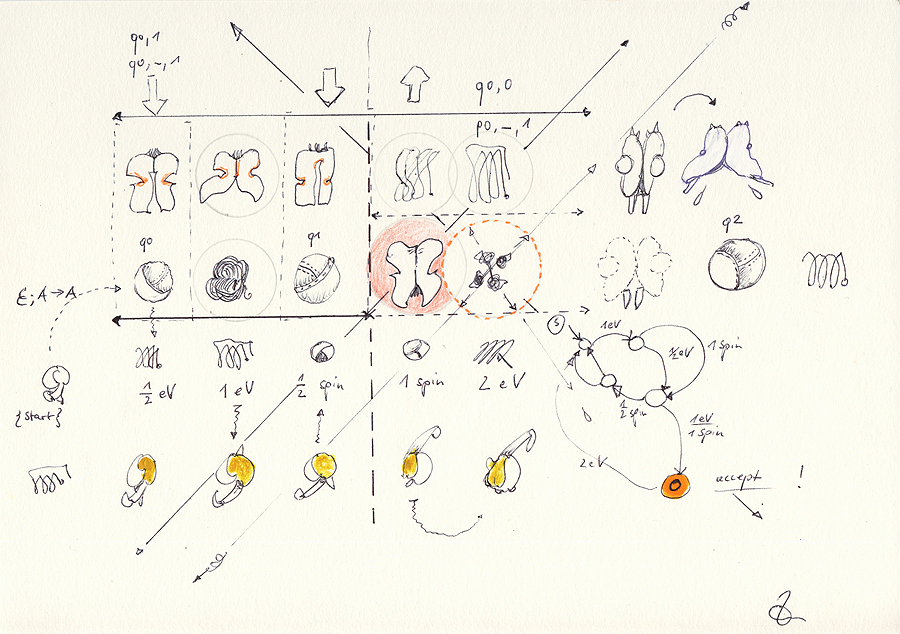 q0,1
q0,-,1
q0,0
p0,-,1
q0
q1
q2
ε; A→A
{start}
½ eV
1 eV
½ spin
1 spin
2 eV
S
1eV
½eV
1 spin
½ spin
1eV
1 spin
2eV
accept !